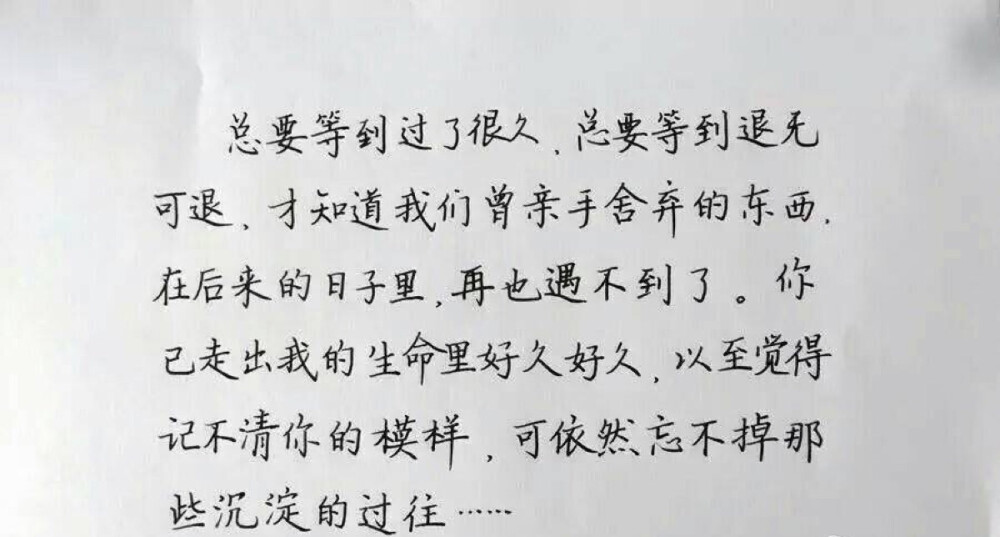 总要等到过了很久,总要等到退无
可退,才知道我们曾亲手舍弃的东西,
在后来的日子里,再也遇不到了。你
已走出我的生命里好久好久,以至觉得
记不清你的模样,可依然忘不掉那
些沉淀的过往……